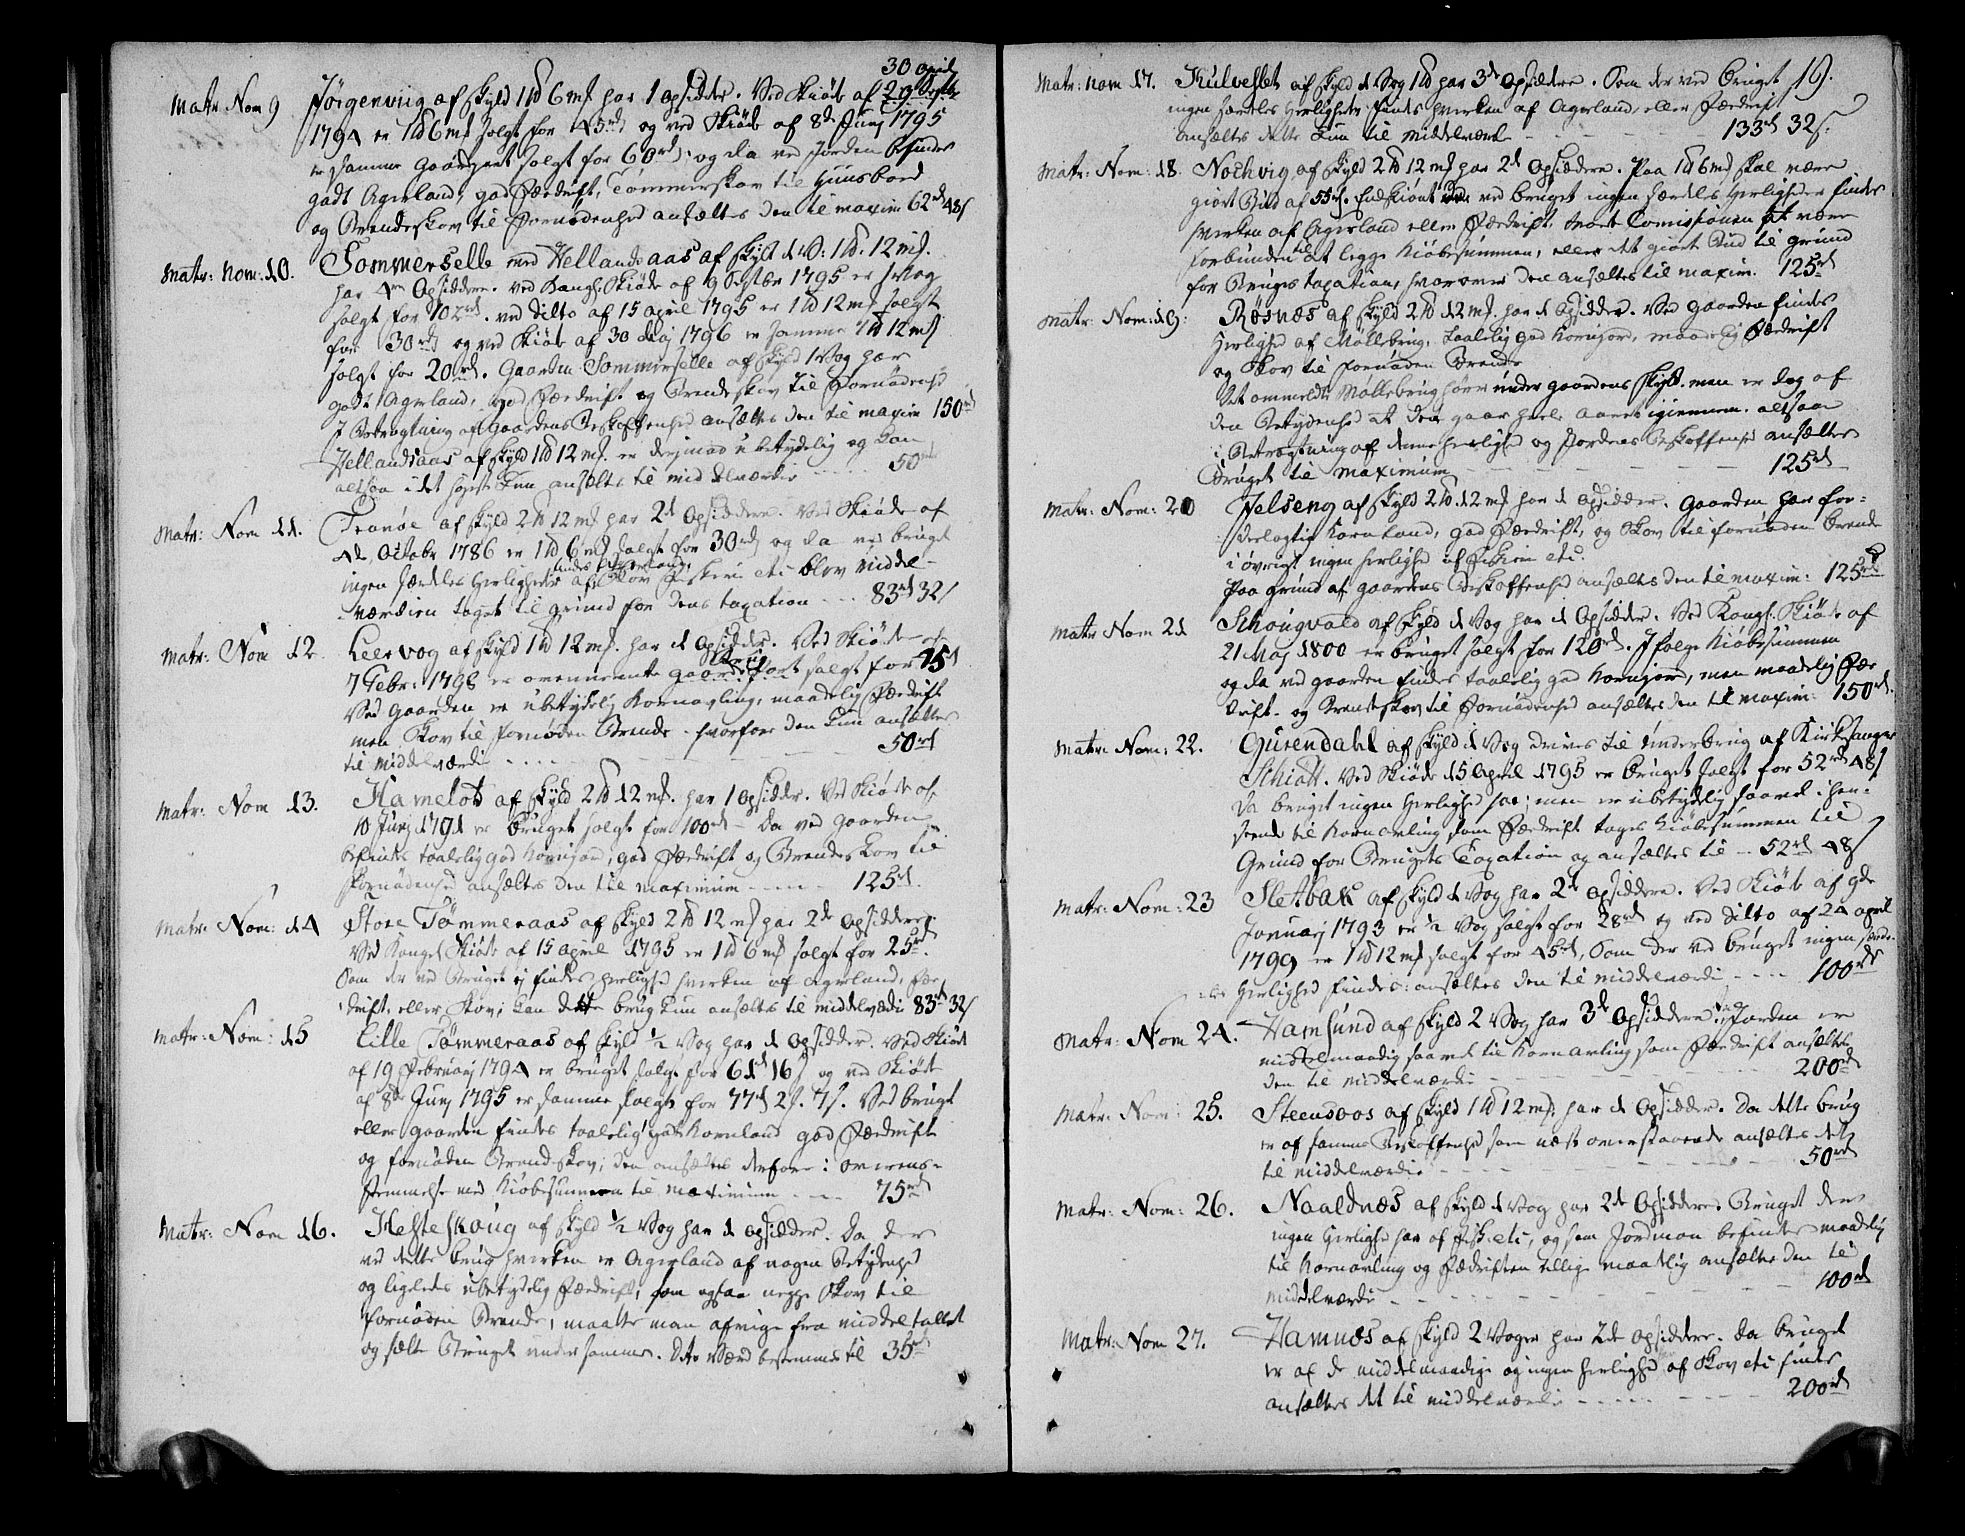 30 april
Matr Nom 9 Jørgenviig af skyld 1 lb 6 mk har 1 opsidder. Ved Skiøde af 29 Septbr
1794 er 1 lb 6 mk solgt for 45 rd og ved Skiøde af 8de Junj 1795
er samme Gaardpart solgt for 60 rd; og da ved Jorden befindes
godt Agerland, god Fædrift, Tømmerskov til Huusbord
og Brendeskov til Fornødenhed ansættes den til maxim 62 rd 48 s
Matr: Nom: 10. Sommerselle med Hellandsaas af skyld 1 V: 1 lb. 12 mk.
har 4re Opsiddere. ved Kongl: Skiøde af 9 Septbr 1795 er 1 Vog
solgt for 102 rd. ved Ditto af 15 april 1795 er 1 lb 12 mk solgt
for 30 rd og ved Skiøde af 30 Maj 1796 er samme 1 lb 12 mk
solgt for 20 rd. Gaarden Sommerselle af skyld 1 Vog har
godt Agerland, god Fædrift og Brendeskov til Fornødenhed
I Betragtning af Gaardens Beskaffenhed ansættes den til maxim 150 rd
Hellandsaas af skyld 1 lb 12 mk. er derimod ubetydelig og kan
altsaa i det høyeste kun ansættes til middelværdie 50 rd
Matr: Nom 11. Tranøe af skyld 2 lb 12 mk har 2de Opsiddere. Ved Skiøde af
4de Octobr 1786 er 1 lb 6 mk solgt for 30 rd og da ved bruget
ingen særdeles Herligheder af Skov Fiskeri etc blev middel-
værdien taget til grund for dens taxation - - - 83 rd 32 s
Matr: Nom 12. Leervog af skyld 1 lb 12 mk. har 1 Opsidder. Ved Skiøde af
7 Febr: 1798 er ovennevnte gaard solgt for 75 rd
Ved Gaarden er ubetydelig Kornavling, maadelig Fædrift
men Skov til fornøden Brende - hvorfor den kun ansættes
til middelværdi - - - - 50 rd
Matr: Nom 13. Hamelot af skyld 2 lb 12 mk. har 1 Opsidder. Ved Skiøde af
10 Junj 1791 er Bruget solgt for 100 rd - Da ved Gaarden
befindes taalelig god Kornjord, god Fædrift og Brendeskov til
Fornødenhed ansættes den til maximum - - - - 125 rd.
Matr: Nom: 14 Store Tømmeraas af skyld 2 lb 12 mk har 2de Opsiddere.
Ved Kongel Skiøde af 15 april 1795 er 1 lb 6 mk solgt for 25 rd.
Som der ved Bruget ej findes herlighed hverken af Agerland, Fæe
drift, eller Skov, kan dette brug kun ansættes til middelværdi 83 rd 32 s
Matr: Nom: 15 Lille Tømmeraas af skyld 1/2 Vog har 1 Opsidder. Ved Skiøde
af 19 Februarj 1794 er bruget solgt for 61 rd 16 s og ved Skiøde
af 8de Junj 1795 er samme solgt for 77 rd 2 . 7 s. Ved bruget
eller gaarden findes taalelig godt Kornland god Fædrift
og fornøden Brendeskov; den ansættes derfor i overens-
stemmelse med Kiøbesummen til maximum - - - 75 rd
Matr: Nom 16. Hesteskoug af skyld 1/2 Vog har 1 opsidder. Da der
ved dette brug hverken er Agerland af nogen Betydenhed
og ligeledes ubetydelig Fædrift, som ogsaa neppe Skov til
fornøden Brende, maatte man afvige fra middeltallet
og sætte Bruget under samme. Dets Værd bestemmes til 35 rd
19.
Matr: nom 17. Kulvesset af skyld 1 Vog 1 lb har 3de Opsiddere. Som der ved Bruget
ingen særdeles Herligheder findes hverken af Agerland, eller Fædrift
ansættes dette kun til middelværd - - - 133 rd 32 s.
Matr: Nom: 18. Nochvig af skyld 2 lb 12 mk har 2de Opsiddere. Paa 1 lb 6 mk skal være
giort Bud af 55 rd. Endskiønt ved bruget ingen særdeles Herligheder findes
hverken af Agerland eller Fædrift, var Comissionen at være
forbunden til at legge Kiøbesummen, eller det giorte Bud til grund
for Brugets taxation, hvorover den ansættes til maxim. 125 rd
Matr: Nom: 19: Røsnæs af skyld 2 lb 12 mk. har 1 Opsidder. Ved Gaarden findes
Herlighed af Møllebrug, taalelig god Kornjord, maadelig Fædrift
og Skov til fornøden Brende
Det ommeldte Møllebrug hører under Gaardens skyld, men er dog af
den Betydenhed at den gaar heele Aaret igiennem. altsaa
i Betragtning af denne herlighed og Jordens Beskaffenhed ansættes
Bruget til Maximum - - - 125 rd
Matr: Nom: 20 Jelseng af skyld 2 lb 12 mk har 1 Opsidder. Gaarden har for:
deelagtig Kornland, god Fædrift, og Skov til fornøden brende
i øvrigt ingen herlighed af Fiskeri etc:
Paa grund af gaardens Beskaffenhed ansættes den til maxim: 125 rd
Matr Nom 21 Schougvald af skyld 1 Vog har 1 Opsidder. Ved Kongl: Skiøde af
21 Maj 1800 er bruget solgt for 120 rd. I følge Kiøbesummen
og da ved gaarden findes taalelig god Kornjord, men maadelig Fæe
drift - og Brendeskov til Fornødenhed ansættes den til maxim: 150 rd.
Matr: Nom: 22. Gurendahl af skyld 1 Vog drives til Underbrug af Kirkesanger
Schiøtt. Ved Skiøde 15 April 1795 er bruget solgt for 52 rd 48 s
Da bruget ingen herlighed har; men er ubetydelig saavel i hen:
seende til Kornavling som Fædrift tages Kiøbesummen til
Grund for Brugets Taxation og ansættes til - 52 rd 48 s
Matr: Nom: 23 Sletbak af skyld 1 Vog har 2de Opsiddere. Ved Skiøde af 9de
Januarj 1793 er 1/2 Vog solgt for 28 rd og ved Ditto af 24 april
1799 er 1 lb 12 mk solgt for 45 rd, Som der ved bruget ingen særde-
les herlighed findes: ansættes den til middelværdi - - - 100 rd
Matr: Nom 24. Hamsund af skyld 2 Vog har 3de Opsiddere: Jorden er
middelmaadig saavel til Kornavling som Fædrift ansættes
den til middelværdi - - - 200 rd
Matr: Nom: 25. Steensoos af skyld 1 lb 12 mk: har 1 Opsidder. Da dette brug
er af samme Beskaffenhed som næst ovenstaaende ansættes det
til middelværdie - - - 50 rd
Matr: Nom: 26. Naaldnæs af skyld 1 Vog har 2de Opsiddere. Bruget der
ingen Herlighed har af Fisk etc, og som Jordmon befindes maadelig
til Kornavling og Fædriften tillige maadelig ansættes den til
middelværdi - - - 100 rd
Matr: Nom 27. Hamnæs af skyld 2 Voger har 2de Opsiddere. Da bruget
er af de middelmaadige og ingen herlighed af Skov etc findes
ansættes det til middelværdi - - - 200 rd